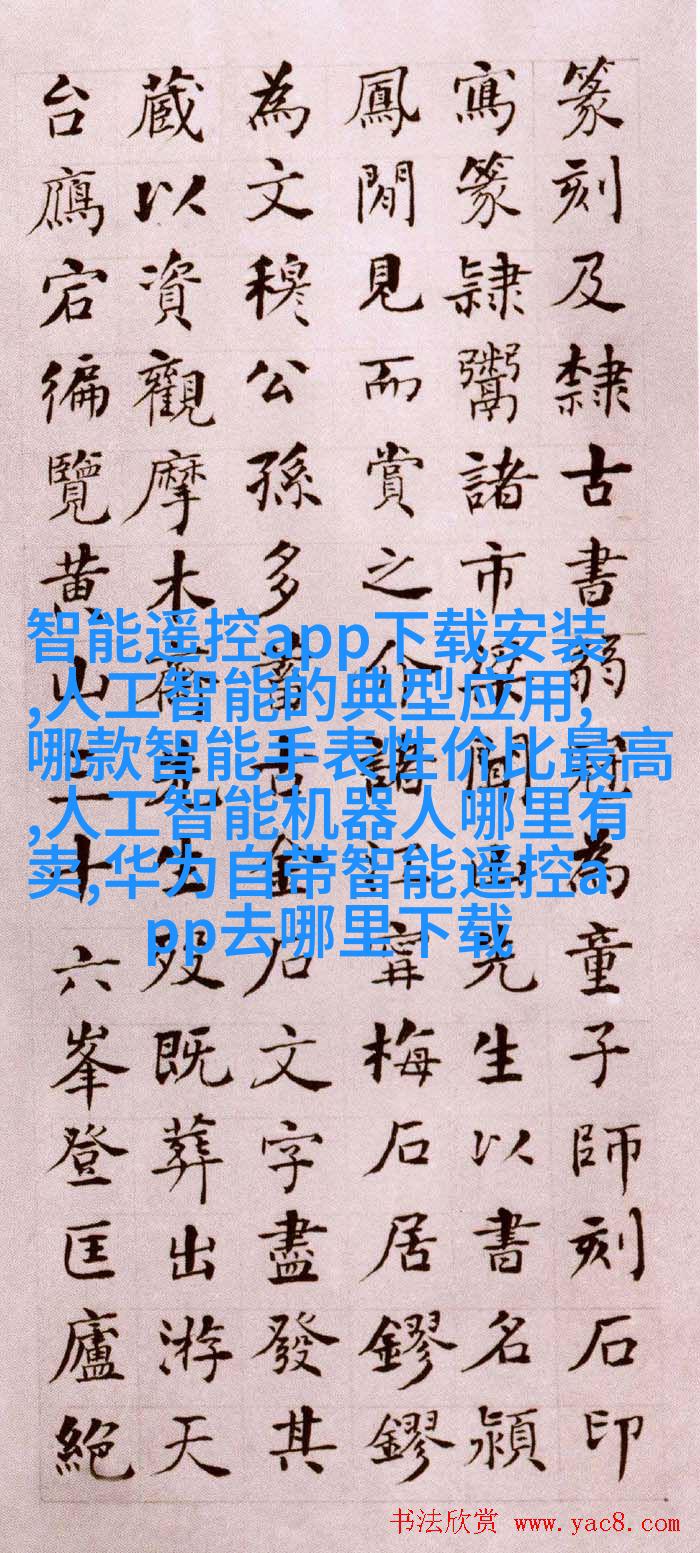 篆刻及隸古書弱冠為童子師刻石印
寫篆隸鬻諸市梁聞山先生以書名潁
鳳閒見而賞之介謁江寧梅石居鏐鏐
為文穆公孫多蓄古金石文字盡發其
蔵以資觀摩木齋先生歿既葬出游天
台鴈宕徧覽黄山三十六峯登匡廬絕
智能遥控app下载安装
,人工智能的典型应用,
哪款智能手表性价比最高
,人工智能机器人哪里有
卖,华为自带智能遥控a
pp去哪里下载
书法欣赏 www.yac8.com